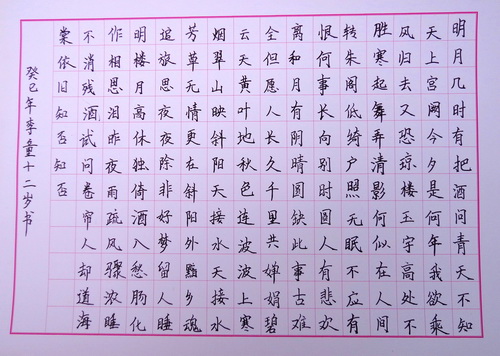 明月几时有把酒问青天不知
天上宫阙今夕是何年我欲乘
风归去又恐琼楼玉宇高处不
胜寒起舞弄清影何似在人间
转朱阁低绮户照无眠不应有
恨何事长向别时圆人有悲欢
离和月有阴晴圆缺此事古难
全但愿人长久千里共婵娟碧
云天黄叶地秋色连波波上寒
烟翠山映斜阳天接水天接水
芳草无情更在斜阳外黯乡魂
追旅思夜夜除非好梦留人睡
明楼月高休独倚酒入愁肠化
作相思泪昨夜雨疏风骤浓睡
不消残酒试问卷帘人却道海
棠依旧知否知否
癸巳年李童十二岁书